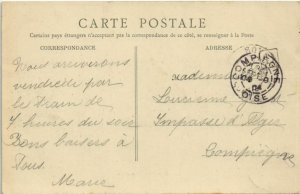 CARTE POSTALE
Certains pays étrangers n'acceptent pas la correspondance de ce côté, se renseigner à la Poste
CORRESPONDANCE
ADRESSE
Nous arriverons
vendredi par
le train de
7 heures du soir
Bons baisers à
Tous
Marie
COMPIEGNE
OISE
04
Madame
Lucienne
Impasse d'Alger
Compiègne